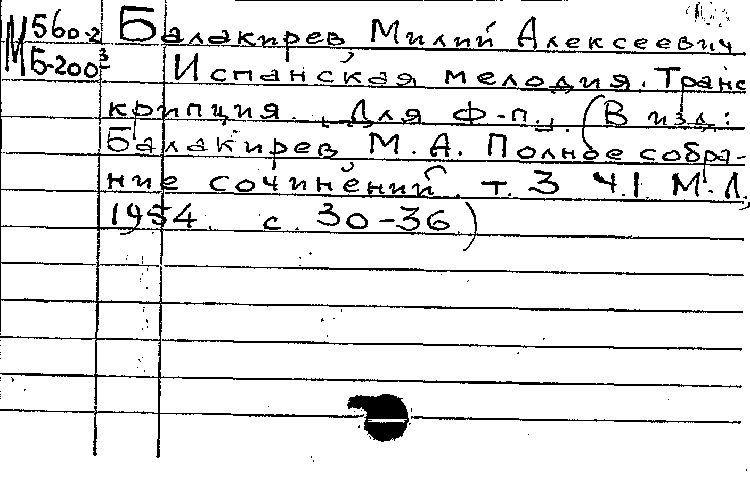 М 560-2 Балакирев, Милий Алексеевич
М Б-200³ Испанская мелодия. Транс
крипция. [Для ф-п.]. (В изд.:
Балакирев, М. А. Полное собра-
ние сочинений. т. 3 ч. 1 М.-Л,
1954. с. 30-36)